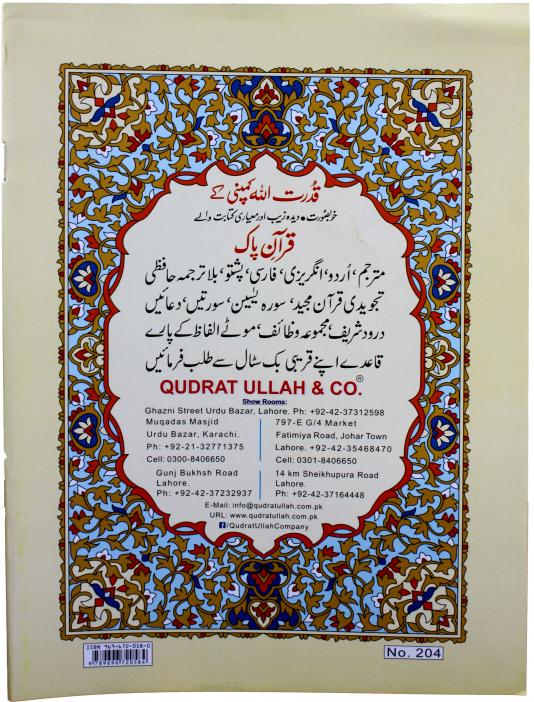 قُدرت اللہ کمپنی کے
خوبصورت • دیدہ زیب اور معیاری کتابت والے
قرآنِ پاک
مترجم، اُردو، انگریزی، فارسی، پشتو، بلا ترجمہ حافظی
تجویدی قرآن مجید، سورہ یٰسین، سورتیں، دعائیں
درود شریف، مجموعہ وظائف، موٹے الفاظ کے پارے
قاعدے اپنے قریبی بک سٹال سے طلب فرمائیں
QUDRAT ULLAH & CO.®
Show Rooms:
Ghazni Street Urdu Bazar, Lahore. Ph: +92-42-37312598
Muqadas Masjid
Urdu Bazar, Karachi.
Ph: +92-21-32771375
Cell: 0300-8406650
797-E G/4 Market
Fatimiya Road, Johar Town
Lahore. +92-42-35468470
Cell: 0301-8406650
Gunj Bukhsh Road
Lahore.
Ph: +92-42-37232937
14 km Sheikhupura Road
Lahore.
Ph: +92-42-37164448
E-Mail: info@qudratullah.com.pk
URL: www.qudratullah.com.pk
f/QudratUllahCompany
ISBN 969-672-058-0
9789696720584
No. 204